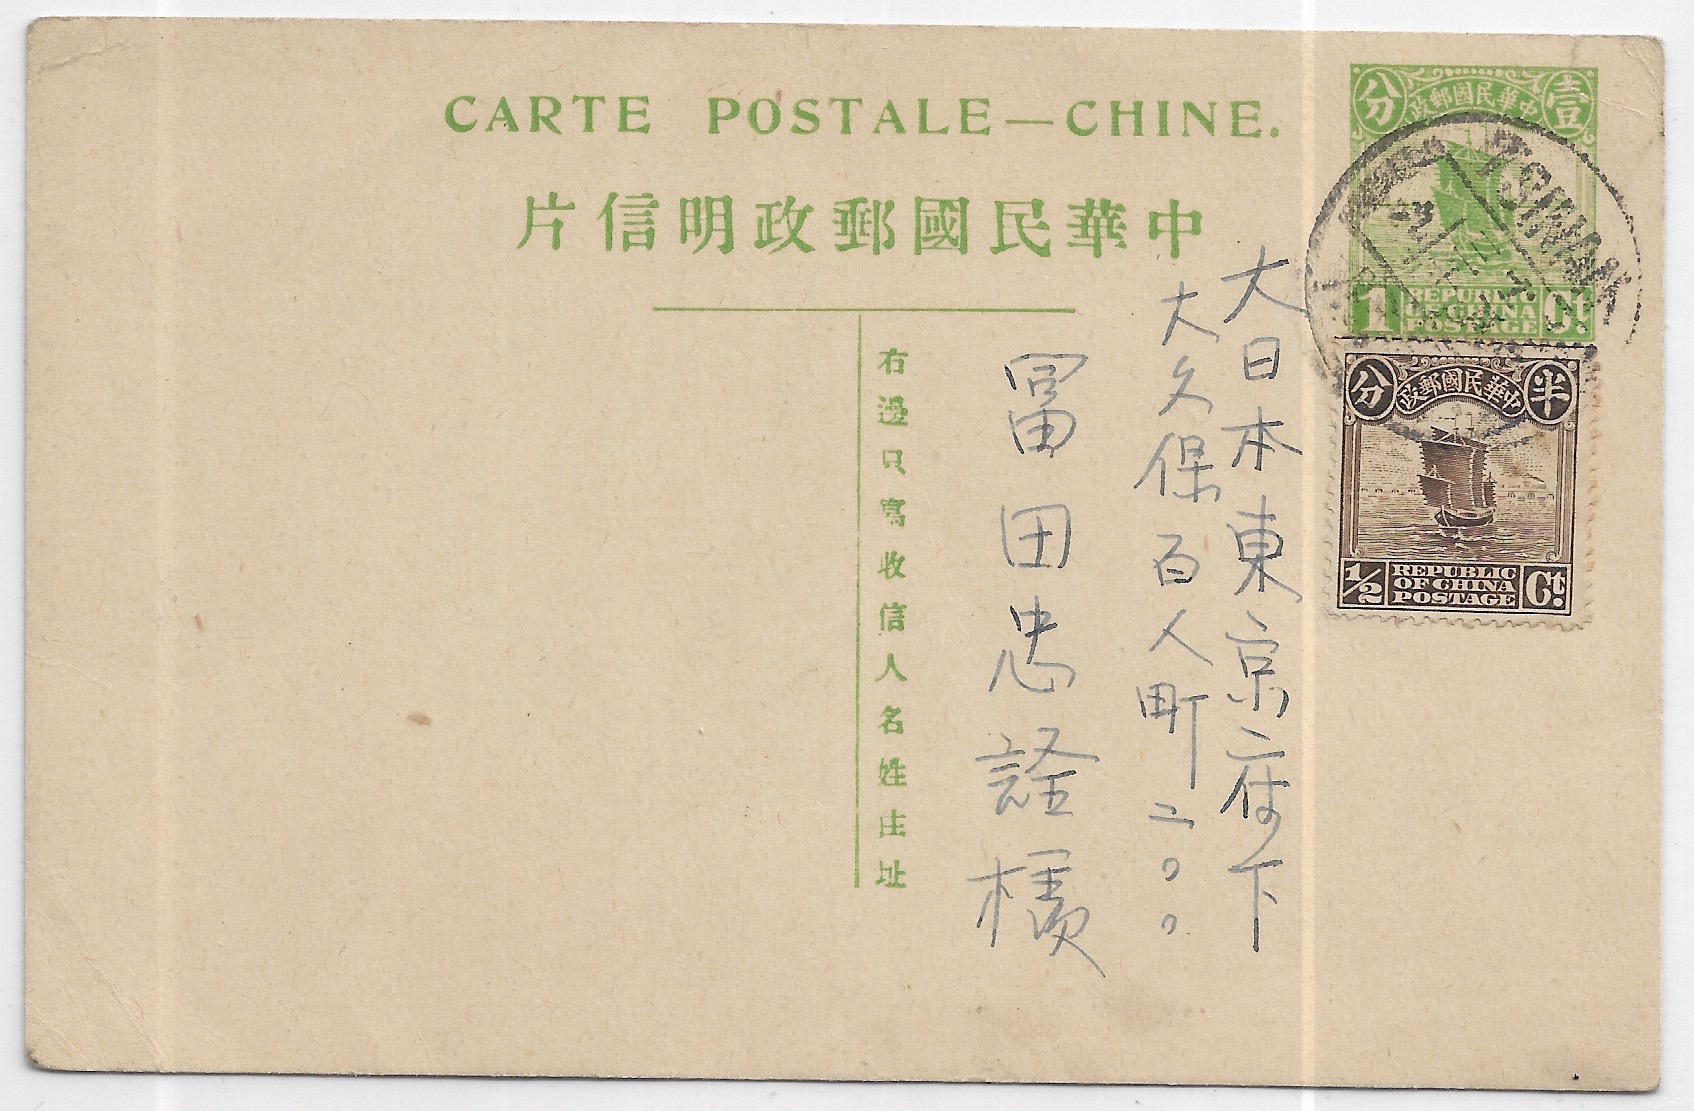 CARTE POSTALE—CHINE.
中華民國郵政明信片
右邊只寫收信人名姓住址
大日本東京府下
大久保百人町二〇〇
冨田忠詮様
中華民國郵政
壹
分
1
REPUBLIC
OF CHINA
POSTAGE
Ct.
TSINAN
中華民國郵政
半
分
1/2
REPUBLIC
OF CHINA
POSTAGE
Ct.